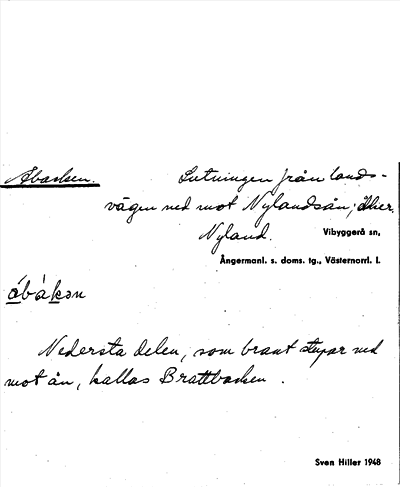 Åbacken. Lutningen från lands-
vägen ned mot Nylandsån;
Nyland. Vibyggerå sn,
Ångermanl. s. doms. tg., Västernorrl. l.
åbåkən
Nedersta delen, som brant stupar ned
mot ån, kallas Brattbacken.
Sven Hiller 1948